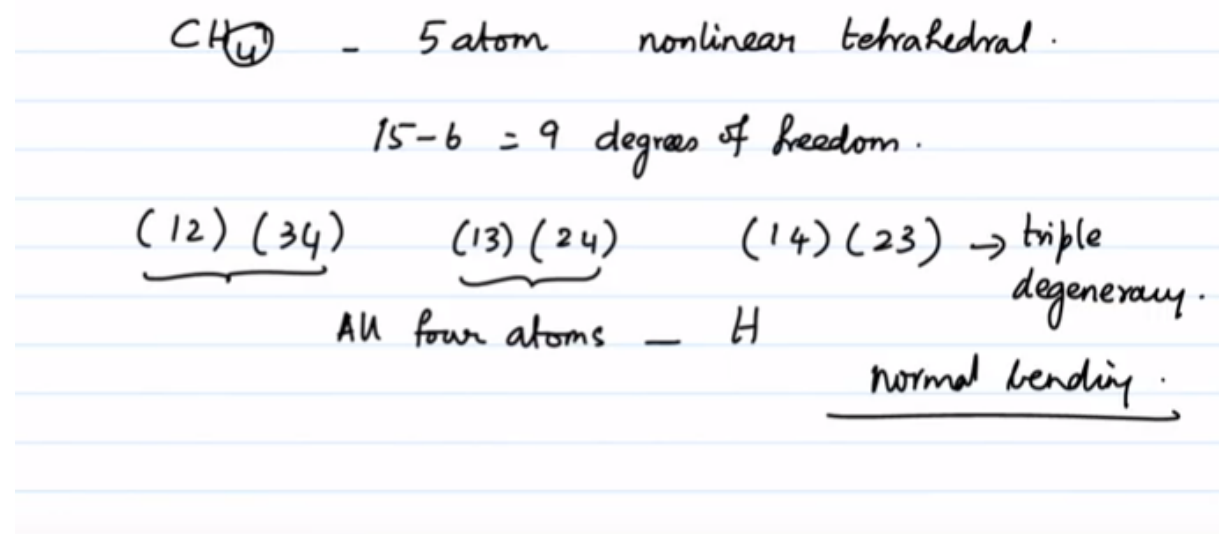 CH4 - 5 atom nonlinear tetrahedral.
15-6 = 9 degrees of freedom.
(12) (34) (13) (24) (14) (23) → triple
degeneracy.
All four atoms - H
normal bending.